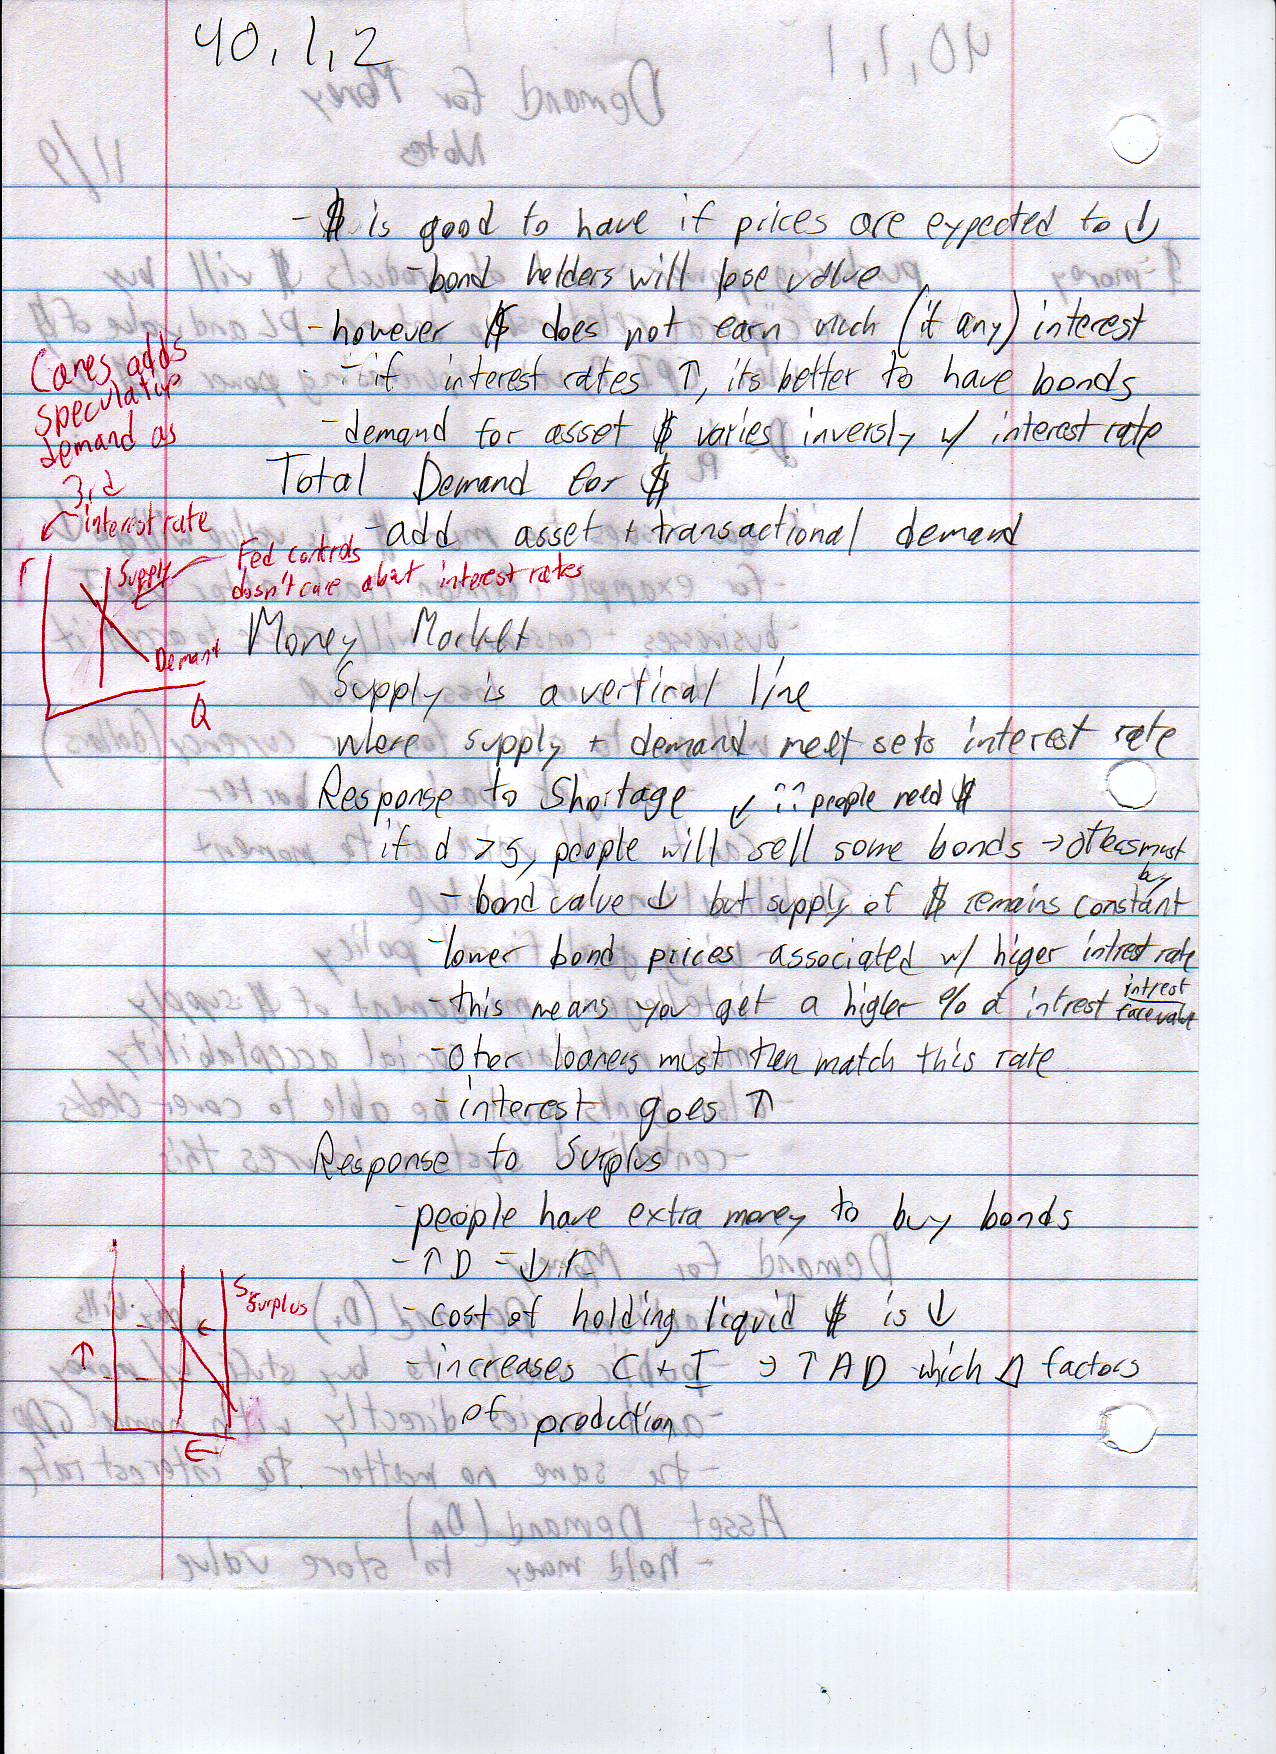 40,1,2
- $ is good to have if prices are expected to ↓
- bond holders will lose value
- however $ does not earn much (if any) interest
- if interest rates ↑, its better to have bonds
- demand for asset $ varies inversly w/ interest rate
Canes adds
speculative
demand as
3rd
Total Demand for $
- add asset + transactional demand
interest rate
r
Supply
Fed controls
doesn't care about interest rates
Demand
Q
Money Market
Supply is a vertical line
where supply + demand meet sets interest rate
Response to Shortage
people need $
if d > s, people will sell some bonds → others must
buy
- bond value ↓ but supply of $ remains constant
- lower bond prices associated w/ higer intrest rate
- this means you get a higher % of intrest intrest
face value
- other loaners must then match this rate
- interest goes ↑
Response to Surplus
- people have extra money to buy bonds
- ↑ D - ↓ r
- cost of holding liquid $ is ↓
- increases C + I → ↑ AD which Δ factors
of production
S
Surplus
↑
←
←